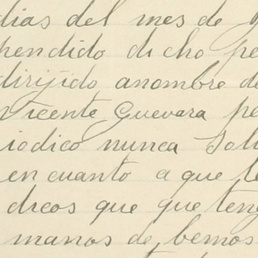 dias del mes de
pendido dicho pe
dirijido anombre de
Vicente Guevara pe
iodico nunca Sal
en cuanto a que te
dreos que que teng
manos de bemos